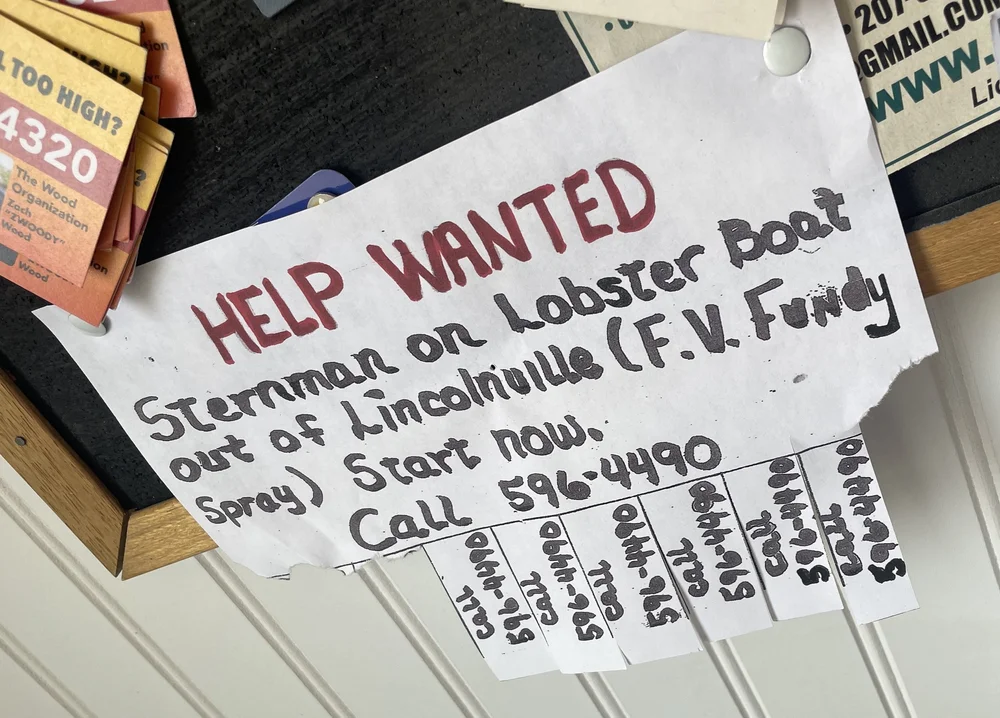 L TOO HIGH?
HIGH?
?
4320
The Wood
Organization
Zach
"ZWOODY"
Wood
Wood
on
on
on
• 207-
GMAIL.COM
www.
Lic
HELP WANTED
Sternman on Lobster Boat
out of Lincolnville (F.V. Fundy
Spray) Start now.
Call 596-4490
Call
596-4490
Call
596-4490
Call
596-4490
Call
596-4490
Call
596-4490
Call
596-4490